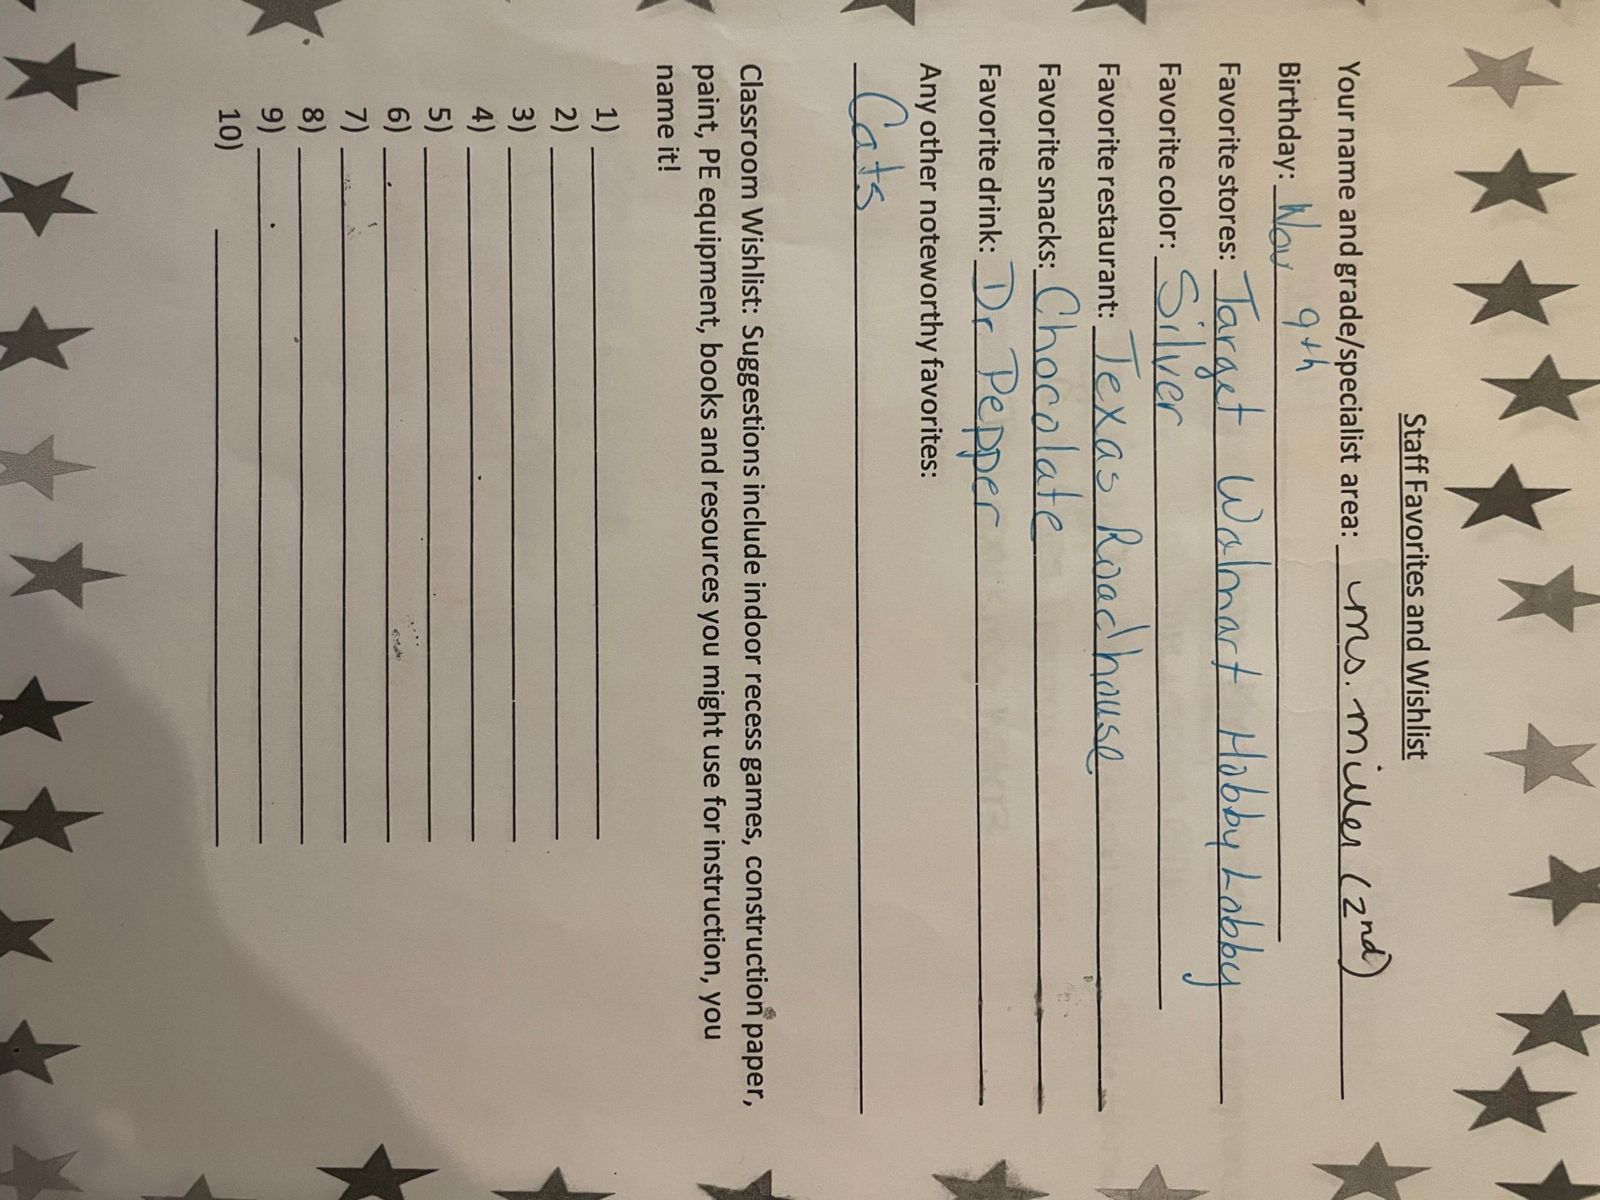 Staff Favorites and Wishlist
Your name and grade/specialist area: Ms. Miller (2nd)
Birthday: Nov 9th
Favorite stores: Target Walmart Hobby Lobby
Favorite color: Silver
Favorite restaurant: Texas Roadhouse
Favorite snacks: Chocolate
Favorite drink: Dr Pepper
Any other noteworthy favorites:
Cats
Classroom Wishlist: Suggestions include indoor recess games, construction paper,
paint, PE equipment, books and resources you might use for instruction, you
name it!
1)
2)
3)
4)
5)
6)
7)
8)
9)
10)